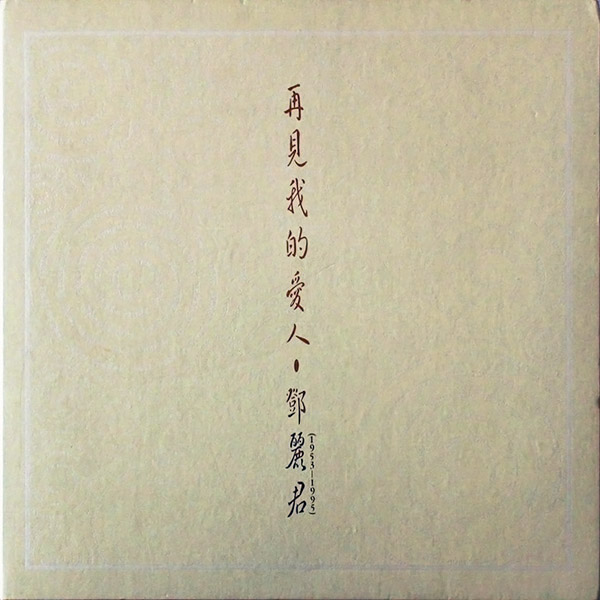 再見我的愛人・鄧麗君
(1953—1995)